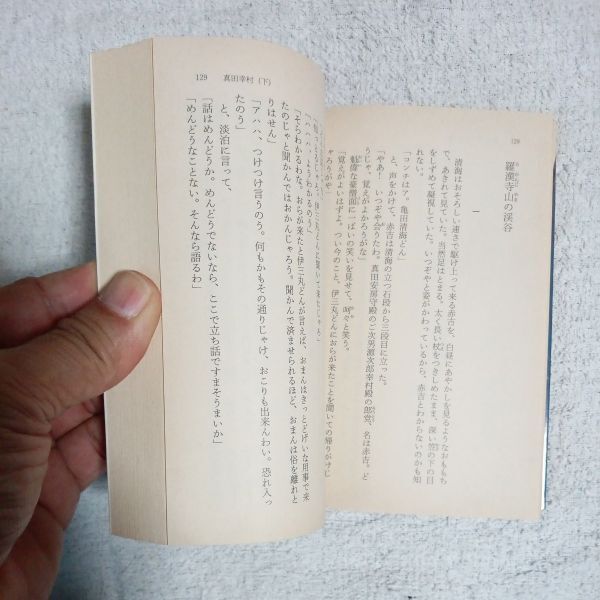 128
羅漢寺山の渓谷
一
清海はおそろしい速さで駆け上って来る赤吉を、白昼にあやかしを見るようなおももち
で、あきれて見ていた。当然足はとまる。太く長い杖をつきしめたまま、深い笠の下の目
をしずめて凝視していた。いつぞやと姿がかわっているから、赤吉とわからないのかも知
「コンチはア。亀田清海どん」
と、声をかけて、赤吉は清海の立つ石段から三段目に立った。
「やあ！ いつぞや会うたわ。真田安房守殿のご次男源次郎幸村殿の郎党、名は赤吉。ど
うじゃ、覚えがよかろうがな」
魁偉な豪僧面に一ぱいの笑いを見せて、呵々と笑う。
「覚えがよいはずよ。つい今のこと、伊三丸どんにおらが来たことを聞いての帰りがけじ
ゃろうがや」
129 真田幸村（下）
「ハハハ、ようわかるのう」
「そらわかるわな。おらが来たと伊三丸どんが言えば、おまんはきっとどげいな用事で来
たのじゃと聞かんではおかんじゃろう。聞かんで済ませられるほど、おまんは俗を離れと
りはせん」
「アハハ、つけつけ言うのう。何もかもその通りじゃけ、おこりも出来んわい。恐れ入っ
たのう」
と、淡泊に言って、
「話はめんどうか。めんどうでないなら、ここで立ち話ですまそうまいか」
「めんどうなことない。そんなら語るわ」